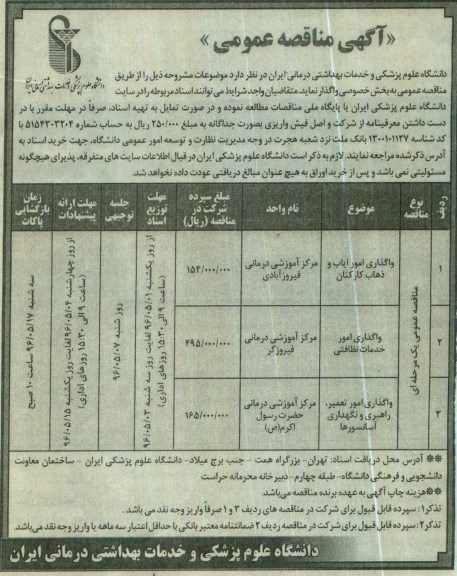 «آگهی مناقصه عمومی»
دانشگاه علوم پزشکی و خدمات بهداشتی درمانی ایران
دانشگاه علوم پزشکی و خدمات بهداشتی درمانی ایران در نظر دارد موضوعات مشروحه ذیل را از طریق
مناقصه عمومی به بخش خصوصی واگذار نماید. متقاضیان واجد شرایط می توانند اسناد مربوطه را در سایت
دانشگاه علوم پزشکی ایران یا پایگاه ملی مناقصات مطالعه نموده و در صورت تمایل به تهیه اسناد، صرفاً در مهلت مقرر با در
دست داشتن معرفینامه از شرکت و اصل فیش واریزی بصورت جداگانه به مبلغ ۲۵۰/۰۰۰ ریال به حساب شماره ۵۱۵۴۳۰۳۲۰۴ با
کد شناسه ۱۳۰۰۱۰۱۱۳۷ بانک ملت نزد شعبه هجرت در وجه مدیریت نظارت و توسعه امور عمومی دانشگاه، جهت خرید اسناد به
آدرس ذکر شده مراجعه نمایند. لازم به ذکر است دانشگاه علوم پزشکی ایران در قبال اطلاعات سایت های متفرقه، پذیرای هیچگونه
مسئولیتی نمی باشد و پس از خرید اوراق به هیچ عنوان مبالغ دریافتی عودت داده نخواهد شد.
ردیف
نوع مناقصه
موضوع
نام واحد
مبلغ سپرده شرکت در مناقصه (ریال)
مهلت توزیع اسناد
جلسه توجیهی
مهلت ارائه پیشنهادات
زمان بازگشایی پاکات
مناقصه عمومی یک مرحله ای
۱
واگذاری امور ایاب و
ذهاب کارکنان
مرکز آموزشی درمانی
فیروزآبادی
۱۵۴/۰۰۰/۰۰۰
۲
واگذاری امور
خدمات نظافتی
مرکز آموزشی درمانی
فیروزگر
۴۹۵/۰۰۰/۰۰۰
۳
واگذاری امور تعمیر،
راهبری و نگهداری
آسانسورها
مرکز آموزشی درمانی
حضرت رسول
اکرم(ص)
۱۶۵/۰۰۰/۰۰۰
از روز یکشنبه ۹۶/۰۵/۰۱ لغایت روز سه شنبه ۹۶/۰۵/۰۳
(ساعت ۹ الی ۱۵:۳۰ روزهای اداری)
روز شنبه ۹۶/۰۵/۰۷
از روز چهارشنبه ۹۶/۰۵/۰۴ لغایت روز یکشنبه ۹۶/۰۵/۱۵
(ساعت ۹ الی ۱۵:۳۰ روزهای اداری)
سه شنبه ۹۶/۰۵/۱۷ ساعت ۱۰ صبح
** آدرس محل دریافت اسناد: تهران- بزرگراه همت – جنب برج میلاد- دانشگاه علوم پزشکی ایران - ساختمان معاونت
دانشجویی و فرهنگی دانشگاه- طبقه چهارم- دبیرخانه محرمانه حراست
** هزینه چاپ آگهی به عهده برنده مناقصه می‌باشد.
تذکر۱: سپرده قابل قبول برای شرکت در مناقصه های ردیف ۳ و ۱ صرفاً واریز وجه نقد می باشد.
تذکر۲: سپرده قابل قبول برای شرکت در مناقصه ردیف ۲ ضمانتنامه معتبر بانکی با حداقل اعتبار سه ماهه یا واریز وجه نقد می‌باشد.
دانشگاه علوم پزشکی و خدمات بهداشتی درمانی ایران